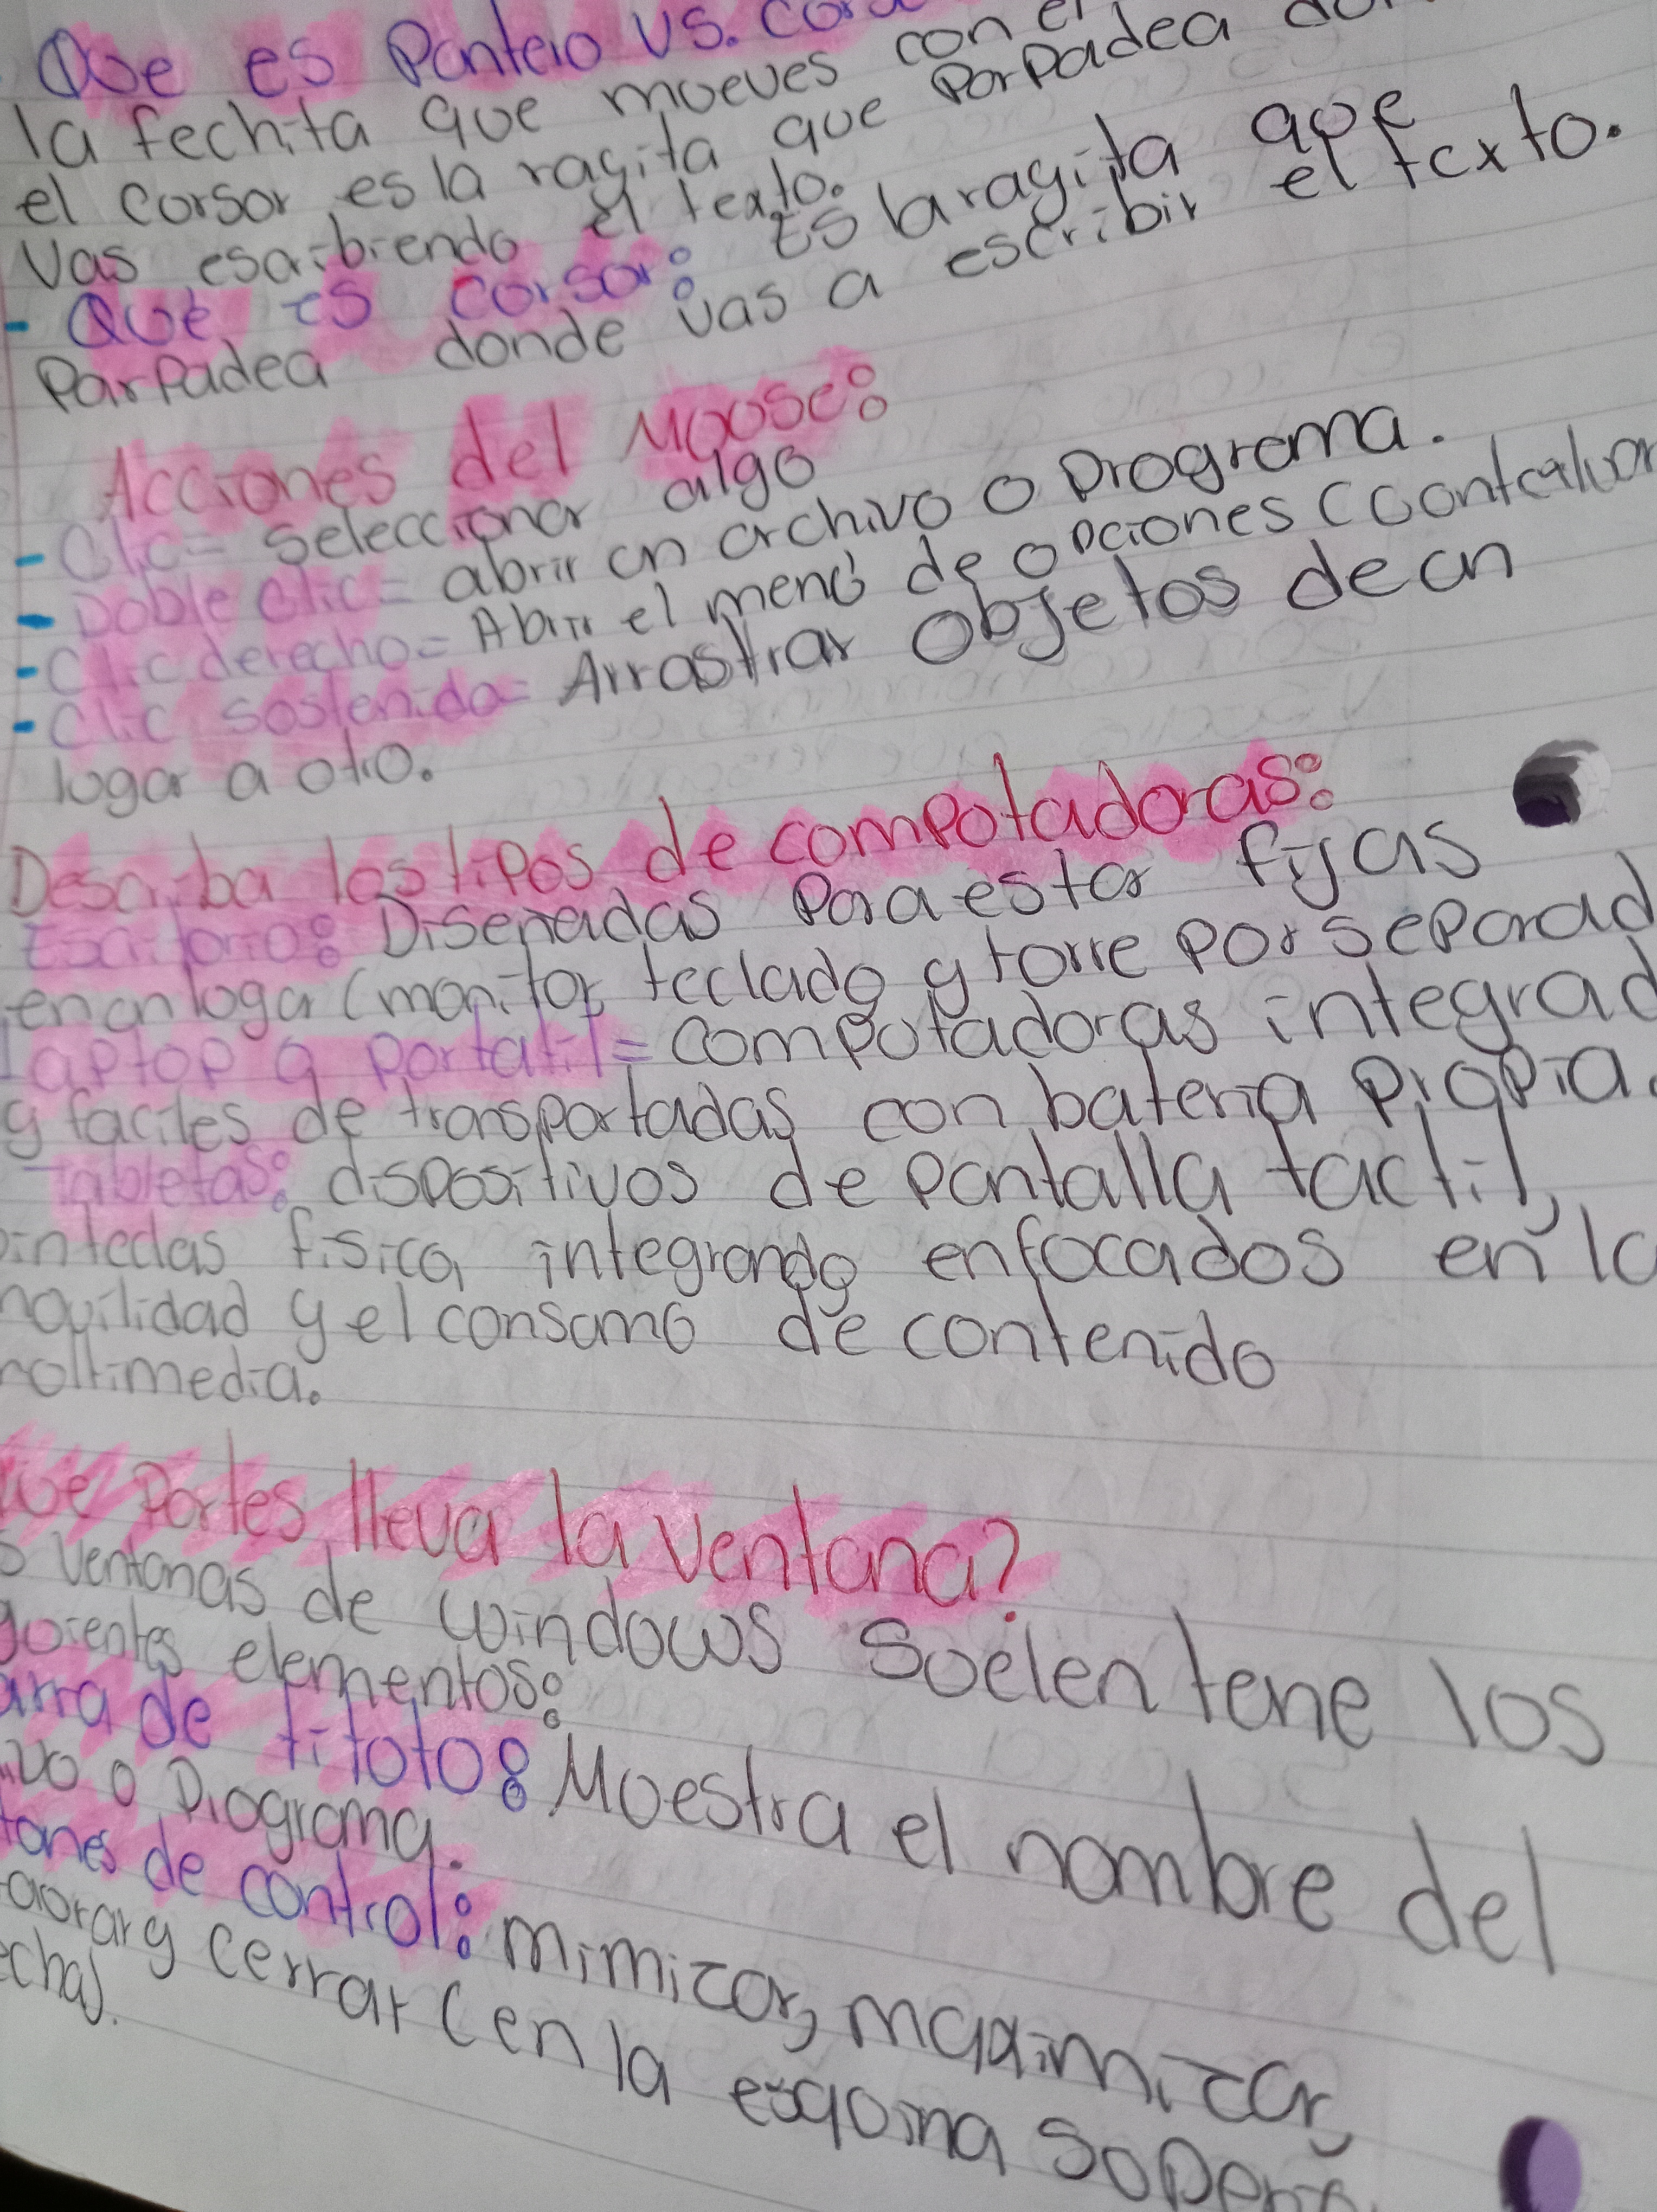 Que es Pontero vs.
la fechita que mueves con el
el corsor es la ragita que Parpadea
vas escribiendo el texto.
- Qué es corsor: Es la ragita que
Parpadea donde vas a escribir el texto.
Acciones del Mouse:
- Clic = seleccionar algo
- Doble clic = abrir un archivo o Programa.
- Clic derecho = Abrir el menú de opciones
- Clic sostenido = Arrastrar objetos de un
lugar a otro.
Describa los tipos de computadoras:
Escritorio: Disenadas Para estar fijas
en un lugar (monitor, teclado y torre por separad
Laptop o portatil = computadoras integrad
y faciles de transportadas con bateria propia.
Tabletas: dispositivos de pantalla tactil,
fisica, integrando enfocados en la
movilidad y el consumo de contenido
multimedia.
Que Partes lleva la ventana?
s ventanas de windows suelen tene los
guientes elementos:
arra de titulo: Muestra el nombre del
ivo o Programa.
tones de control: mimizar, maximizar,
aurar y cerrar (en la esquina
echa).